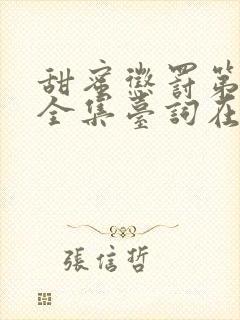 甜蜜懲罰第
全集臺詞在
張信哲